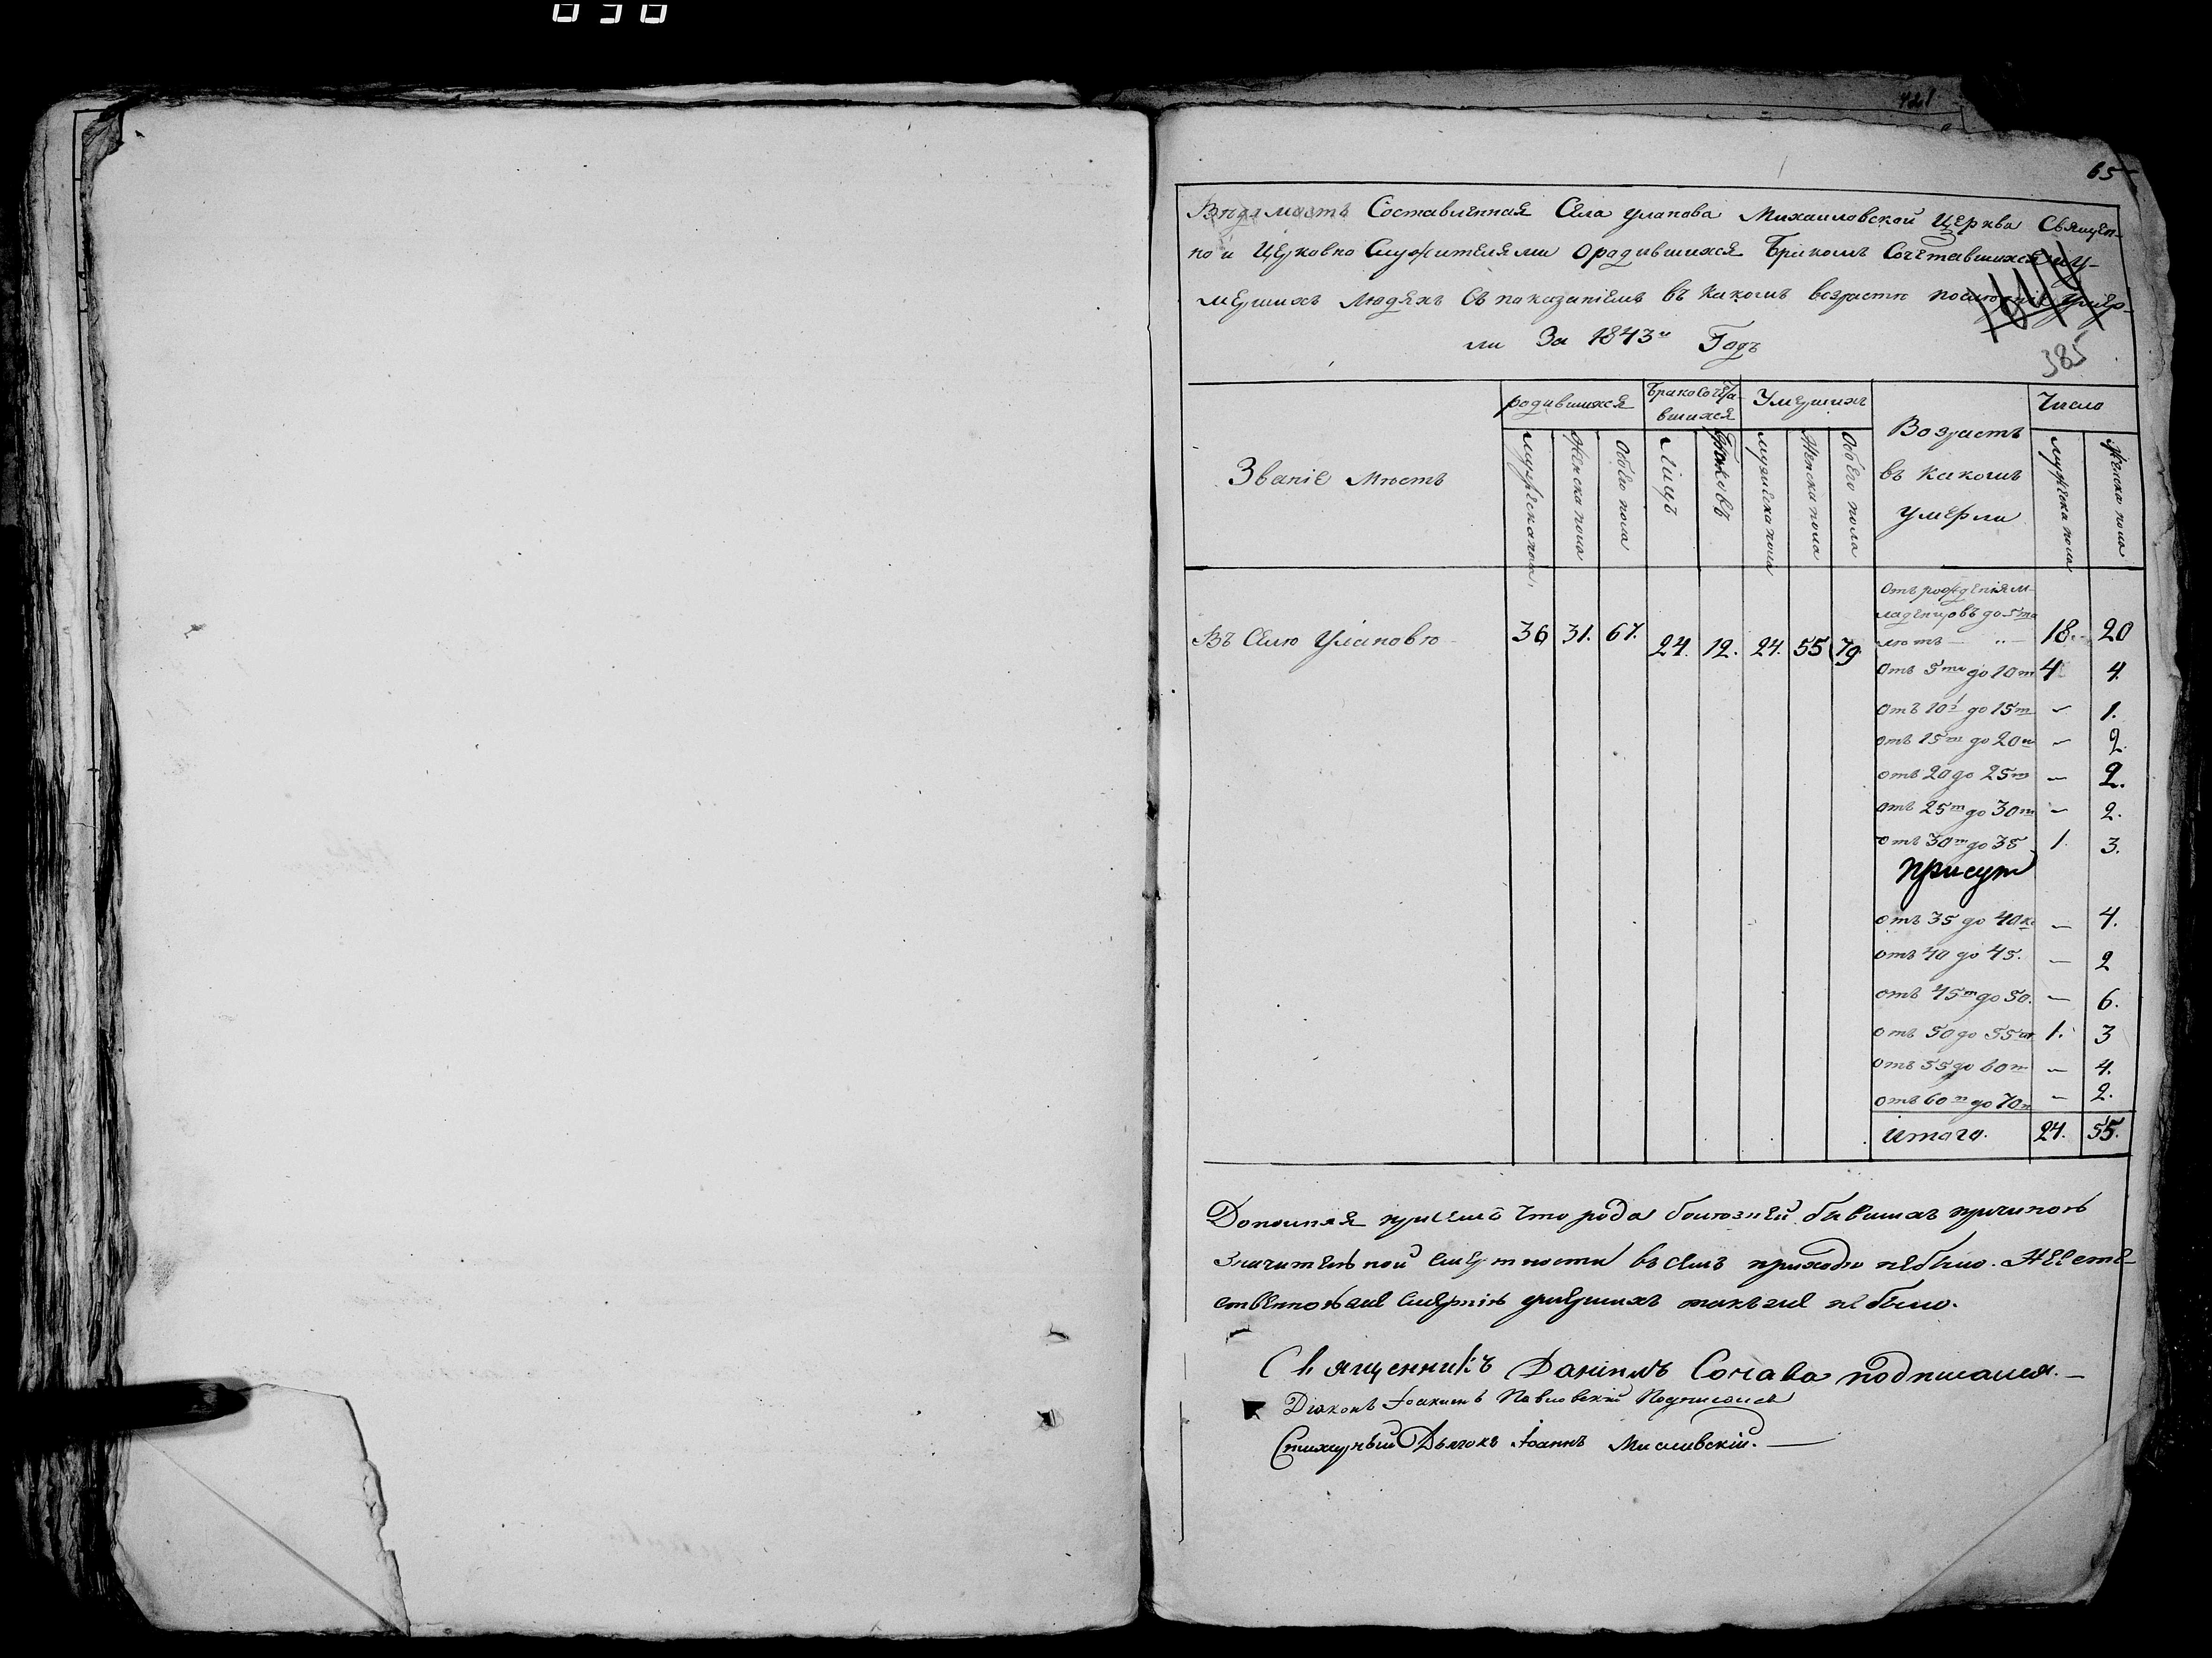 030
421
65
Вѣдомость Составленная Села Уланова Михаиловской Церкви Священ-
но и Церковно Служителями О родившихся Бракомъ Сочетавшихся и у-
мершихъ Людехъ Съ показаніемъ въ какомъ возрастѣ послѣдніе умер-
ли За 1843й Годъ
385
Званіе Мѣстъ
родившихся
Бракосочета-
вшихся
Умершихъ
Возрастъ
въ какомъ
умерли
Число
мужеска пола
женска пола
Обоего пола
Лицъ
Браковъ
мужеска пола
Женска пола
Обоего пола
мужеска пола
женска пола
Въ Селѣ Улановѣ 36 31. 67. 24. 12. 24. 55 79.
Отъ рожденія м-
ладенцовъ до 5ти
лѣтъ — „ — 18. 20
Отъ 5ти до 10т 4 4.
Отъ 10т до 15т — 1.
отъ 15ти до 20т — 2.
отъ 20 до 25т — 2.
отъ 25т до 30т — 2.
отъ 30т до 35 1. 3.
отъ 35 до 40ка — 4.
отъ 40 до 45. — 2
отъ 45т до 50. — 6.
отъ 50 до 55ти 1. 3
отъ 55 до 60т — 4.
отъ 60т до 70т — 2.
Итого. 24. 55.
Дополняя при семъ что рода болѣзней бывшихъ причиною
значительной смертности въ семъ приходѣ небыло. Неесте-
ственною же смертію умершихъ также не было.
Священникъ Даніилъ Сочава подписался. —
Діаконъ Іоакимъ Павловскій Подписался
Стихарный Дьячокъ Іоаннъ Мисливскій. —